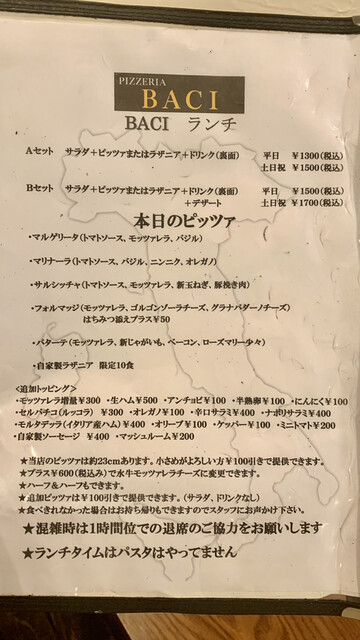 PIZZERIA
BACI
BACI ランチ
Aセット サラダ＋ピッツァまたはラザニア＋ドリンク(裏面) 平日 ￥1300(税込)
土日祝 ￥1500(税込)
Bセット サラダ＋ピッツァまたはラザニア＋ドリンク(裏面) 平日 ￥1500(税込)
＋デザート 土日祝 ￥1700(税込)
本日のピッツァ
・マルゲリータ(トマトソース、モッツァレラ、バジル)
・マリナーラ(トマトソース、バジル、ニンニク、オレガノ)
・サルシッチャ(トマトソース、モッツァレラ、新玉ねぎ、豚挽き肉)
・フォルマッジ(モッツァレラ、ゴルゴンゾーラチーズ、グラナパダーノチーズ)
はちみつ添えプラス￥50
・パターテ(モッツァレラ、新じゃがいも、ベーコン、ローズマリー少々)
・自家製ラザニア 限定10食
<追加トッピング>
・モッツァレラ増量￥300 ・生ハム￥500 ・アンチョビ￥100 ・半熟卵￥100 ・にんにく￥100
・セルバチコ(ルッコラ) ￥300 ・オレガノ￥100 ・辛口サラミ￥400 ・ナポリサラミ￥400
・モルタデッラ(イタリア産ハム)￥400 ・オリーブ￥100 ・ケッパー￥100 ・ミニトマト￥200
・自家製ソーセージ ￥400 ・マッシュルーム￥200
★当店のピッツァは約23cmあります。小さめがよろしい方￥100引きで提供できます。
★プラス￥600(税込み)で水牛モッツァレラチーズに変更できます。
★ハーフ＆ハーフもできます。
★追加ピッツァは￥100引きで提供できます。(サラダ、ドリンクなし)
★食べきれなかった場合はお持ち帰りもできますのでスタッフにお声かけ下さい。
★混雑時は1時間位での退席のご協力をお願いします
★ランチタイムはパスタはやってません